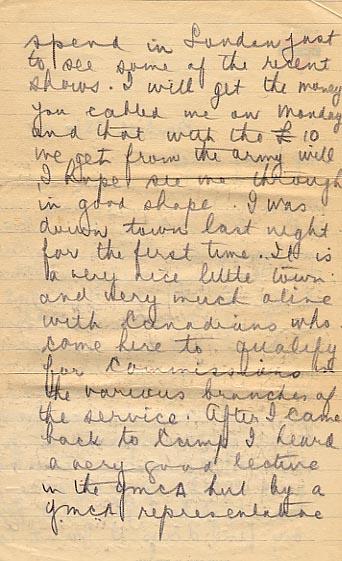 spend in London just
to see some of the recent
shows. I will get the money
you cabled me on Monday
and that with the £10
we get from the army will
I hope see me through
in good shape. I was
down town last night
for the first time. It is
a very nice little town
and very much alive
with Canadians who
come here to qualify
for Commissions in
the various branches of
the service. After I came
back to Camp I heard
a very good lecture
in the YMCA hut by a
YMCA representative